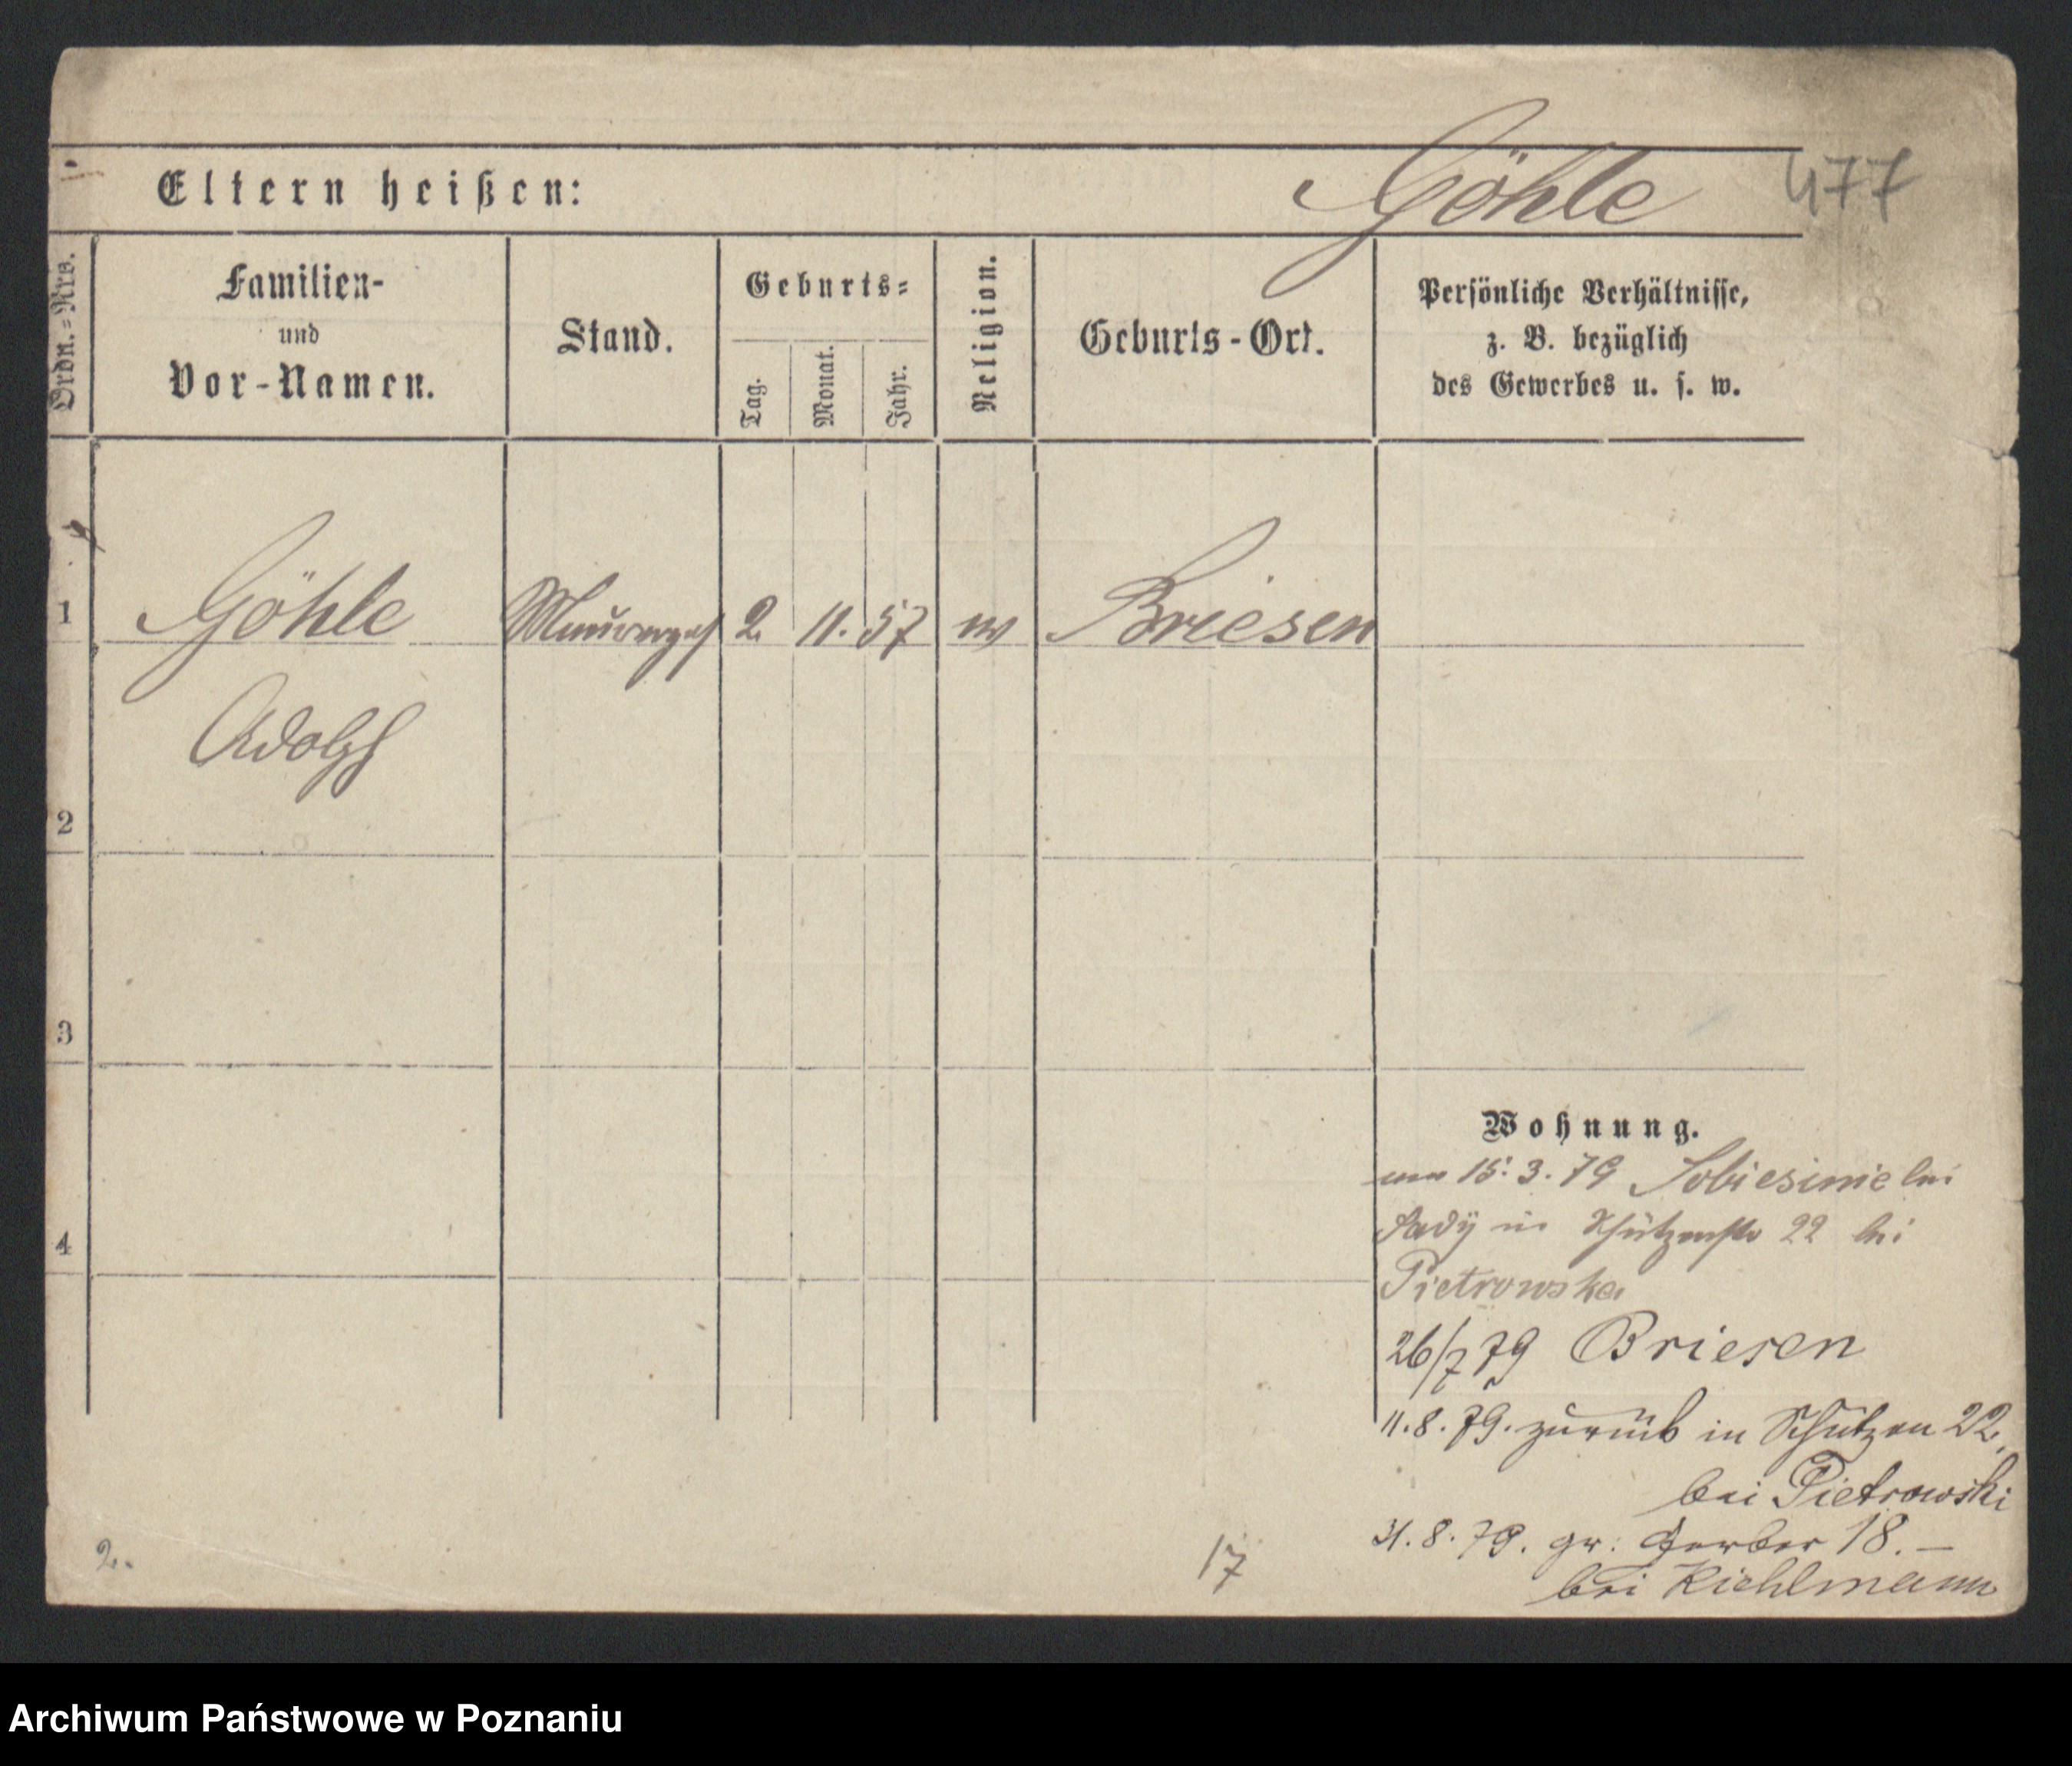 Göhle 477
Eltern heißen:
Ordn.=Nrs.
Familien-
und
Vor-Namen.
Stand.
Geburts=
Tag.
Monat.
Jahr.
Religion.
Geburts-Ort.
Persönliche Verhältnisse,
z. B. bezüglich
des Gewerbes u. s. w.
1 Göhle Maurerges 2. 11. 57 Briesen
Adolph
2
3
4
Wohnung.
15. 3. 79 bei
in Schützenstr 22 bei
Pietrowska
26/7 79 Briesen
11. 8. 79. zurück in Schützen 22.
bei Pietrowski
31. 8. 79. gr: Gerber 18. –
bei Kiehlmann
2.
17
Archiwum Państwowe w Poznaniu